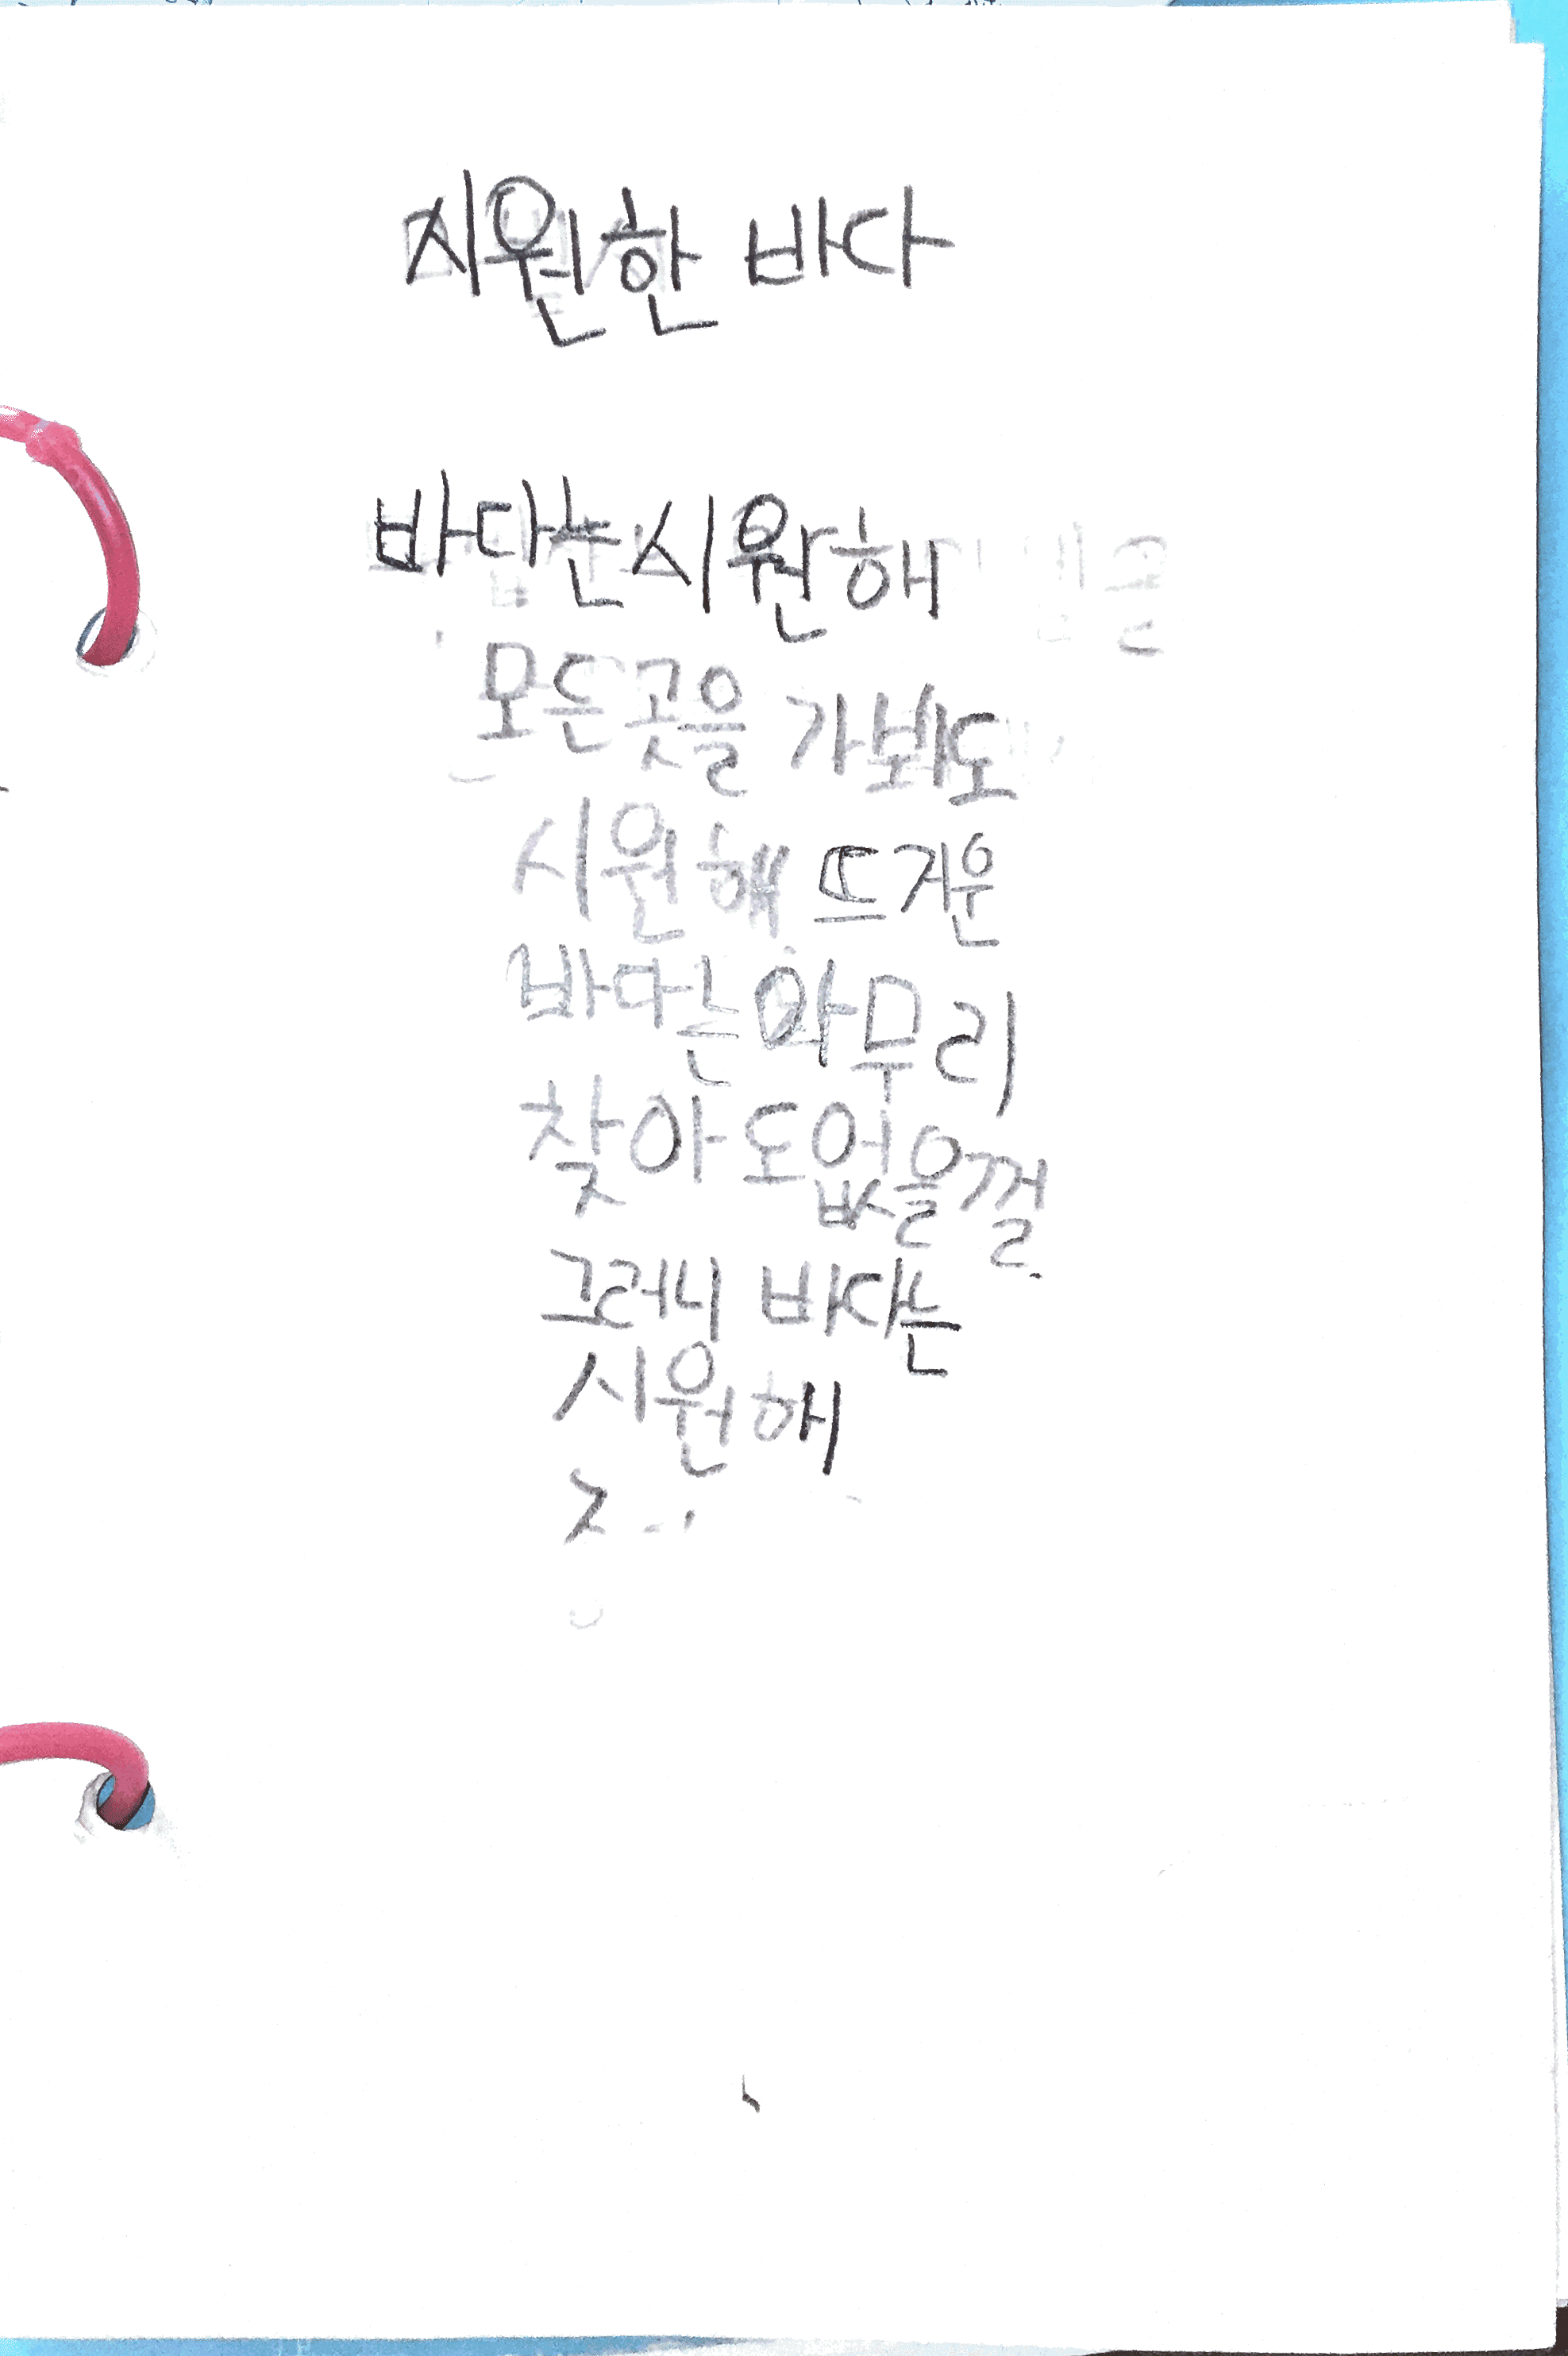 시원한 바다
바다는시원해
모든곳을 가봐도
시원해 뜨거운
바다는아무리
찾아도없을껄
그러니 바다는
시원해